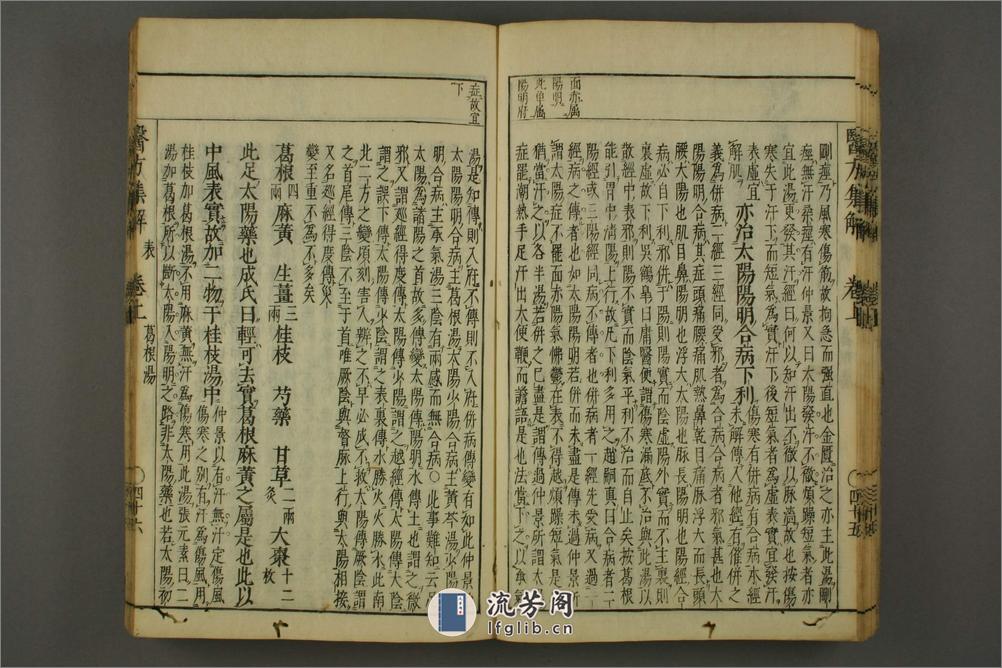 面亦屬
陽明
此單屬
陽明府
醫方集解
剛痙乃風寒傷筋故拘急而強直也金匱治之亦主此湯剛
痙無汗柔痙有汗仲景又曰太陽發汗不徹短氣者亦
宜此湯更發其汗三經曰何以知汗出不徹以脈濇故也按傷
寒失于汗下而短氣為實汗下後短氣者為虛表實宜發汗
表虛宜
解肌 亦治太陽陽明合病下利傷寒有併病有合病本經未解傳入他經有催併之
義為併病二經三經同受邪者為合病合病者邪氣甚也太
陽陽明合病其症頭痛腰強肌熱鼻乾目痛脈浮大而長頭
腰太陽也肌目鼻陽明也浮大太陽也脈長陽明也陽經合
病必自下利邪併于陽則陽實而陰虛陽外實而不主裏則
裏虛故下利吳鶴皐曰庸醫便謂傷寒漏底不治與此湯以
散經中表邪則陽不實而陰氣平利不治而自止矣按葛根
能引胃中清陽上行故凡下利多用之趙嗣真曰合病者二
陽經或三陽經同病不傳者也併病者一經先受病又過一
經病之傳者也如太陽陽明若併而未盡是傳未過仲景所
謂太陽症不罷面色赤陽氣怫鬱在表不得越煩躁短氣是也
猶當汗之以各半湯若併之已盡是謂傳過仲景所謂太陽
症罷潮熱手足汗出大便鞕而譫語是也法當下之以承氣
症故宜
下
湯是知傳則入府不傳則不入府併病傳變有如此仲景
太陽陽明合病主葛根湯太陽少陽合病主黃芩湯少陽陽
明合病主承氣湯三陰有兩感而無合病○此事難知云
太陽為諸陽之首故多傳變太陽傳陽明水傳土也謂之微
邪又謂巡經得度傳太陽傳少陽謂之越經傳太陽傳太陰
謂之誤下傳太陽傳少陰謂之表裏傳水勝火火勝水此南
北二方之變頃刻害人辨之不早必成不救太陽傳厥陰謂
之首尾傳三陰不至于首唯厥陰與督脈上行與太陽相接
又名巡經得度傳
變至重不為不多矣
葛根四兩 麻黃 生薑三兩 桂枝 芍藥 甘草二兩炙 大棗十二枚
此足太陽藥也成氏曰輕可去實葛根麻黃之屬是也此以
中風表實故加二物于桂枝湯中仲景以有汗無汗定傷風傷寒之別有汗為傷風用
桂枝加葛根湯不用麻黃無汗為傷寒用此湯張元素曰二
湯加葛根所以斷太陽入陽明之路非太陽藥也若太陽初
醫方集解 表 卷上 葛根湯 四十六
流芳阁
lfglib.cn